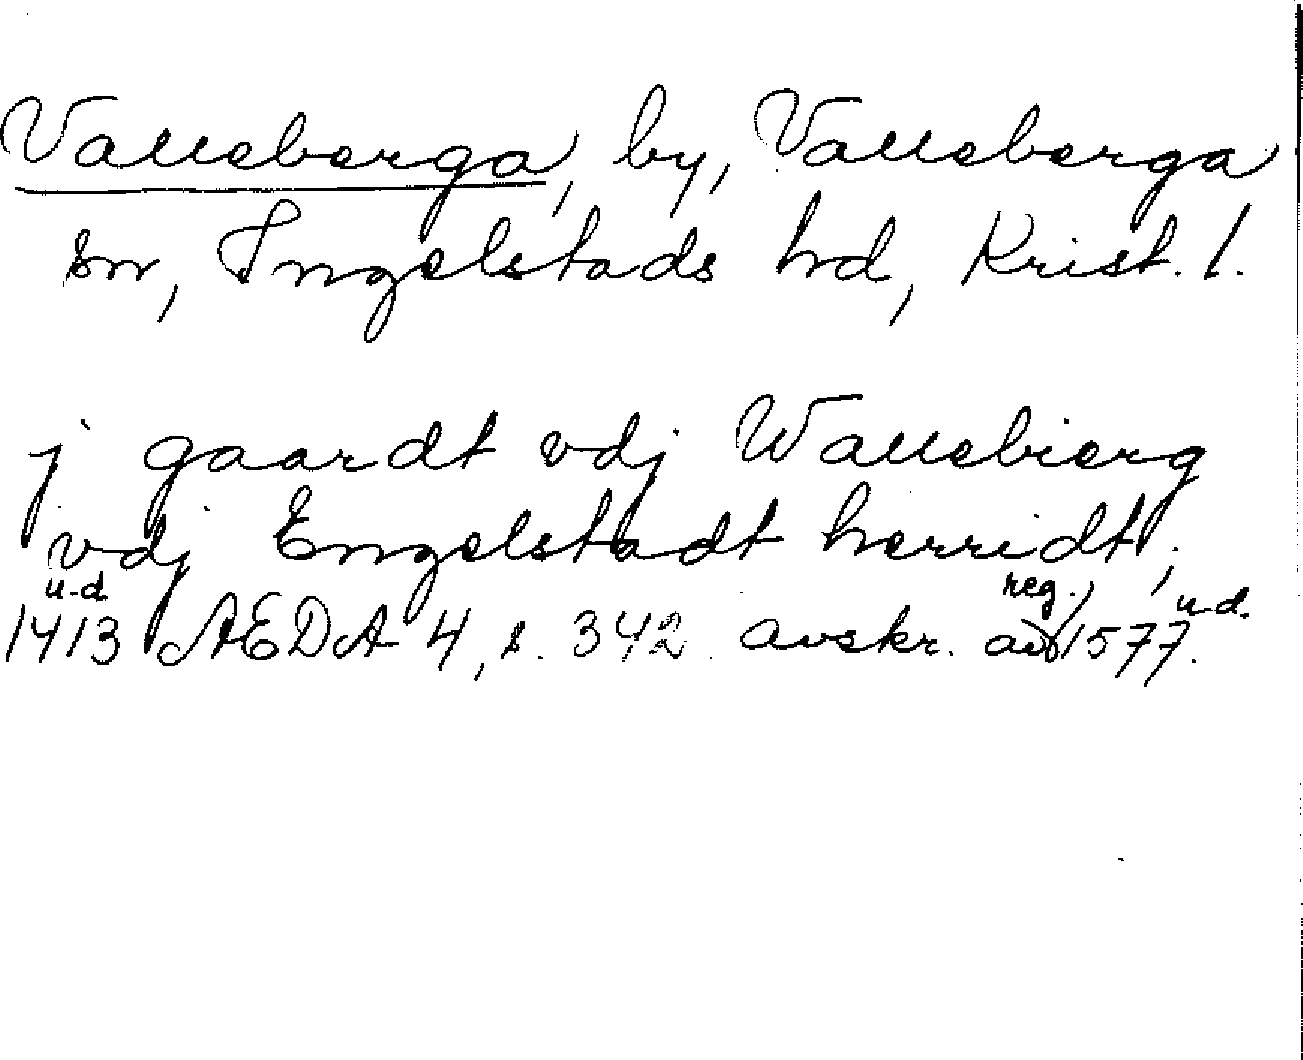 Valleberga, by, Valleberga
sn, Ingelstads hd, Krist. l.
j gaardt vdj Wallebierg
vdj Engelstadt herridt;
u.d. reg., u.d.
1413 AEDA 4, s. 342. avskr. av 1577.